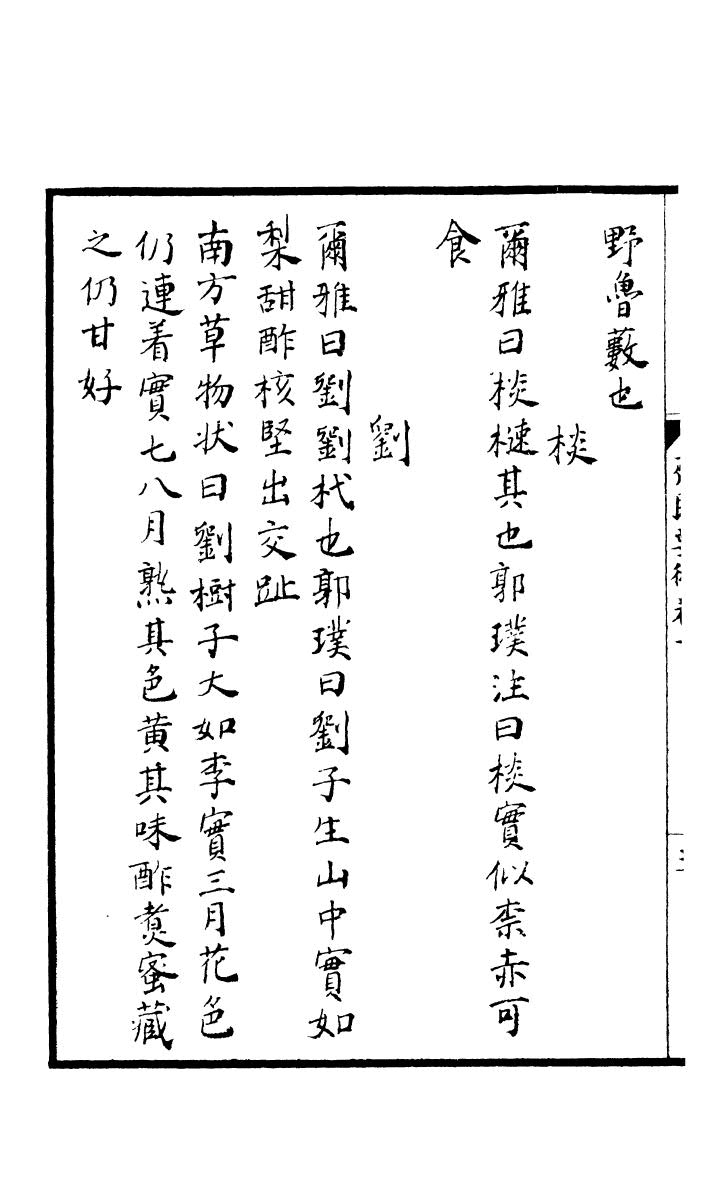 野魯藪也
棪
爾雅曰棪槤其也郭璞注曰棪實似柰赤可
食
劉
爾雅曰劉劉杙也郭璞曰劉子生山中實如
梨甜酢核堅出交趾
南方草物状曰劉樹子大如李實三月花色
仍連着實七八月熟其色黄其味酢煑蜜藏
之仍甘好